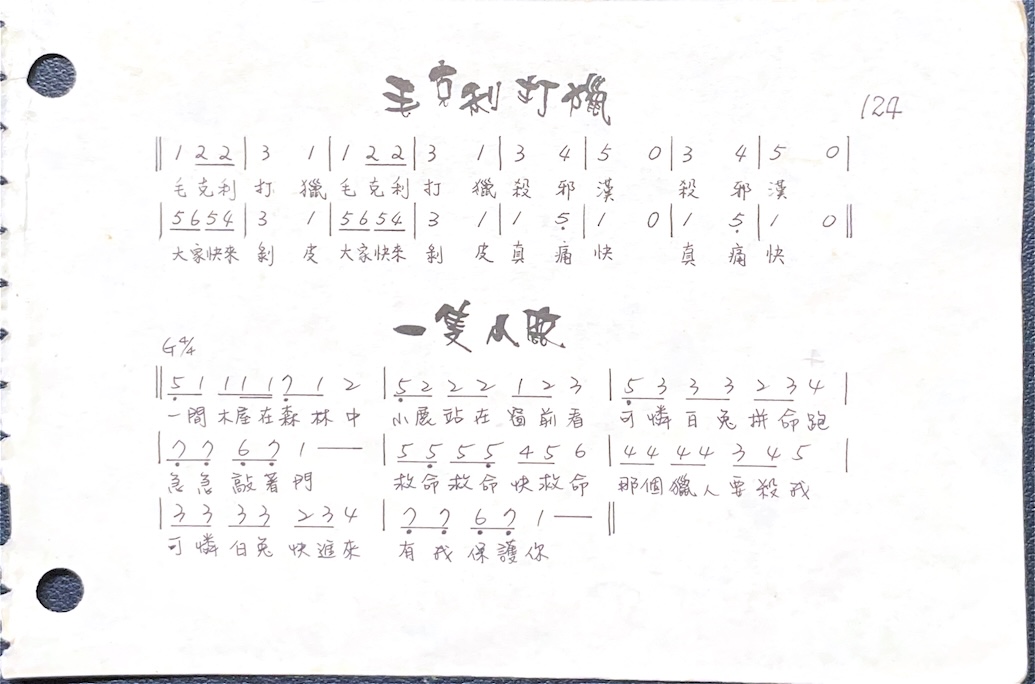 毛克利打獵
124
‖ 1 2 2 | 3 1 | 1 2 2 | 3 1 | 3 4 | 5 0 | 3 4 | 5 0 |
毛克利 打 獵 毛克利 打 獵 殺 邪 漢 殺 邪 漢
| 5 6 5 4 | 3 1 | 5 6 5 4 | 3 1 | 1 5̣ | 1 0 | 1 5̣ | 1 0 ‖
大家快來 剝 皮 大家快來 剝 皮 真 痛 快 真 痛 快
一隻小鹿
G 4/4
‖ 5̣ 1 1 1 1 7̣ 1 2 | 5̣ 2 2 2 1 2 3 | 5̣ 3 3 3 2 3 4 |
一間木屋在森林中 小鹿站在窗前看 可憐白兔拼命跑
| 7̣ 7̣ 6̣ 7̣ 1 — | 5 5̣ 5 5̣ 4 5 6 | 4 4 4 4 3 4 5 |
急急敲著門 救命救命快救命 那個獵人要殺我
| 3 3 3 3 2 3 4 | 7̣ 7̣ 6̣ 7̣ 1 — ‖
可憐白兔快進來 有我保護你